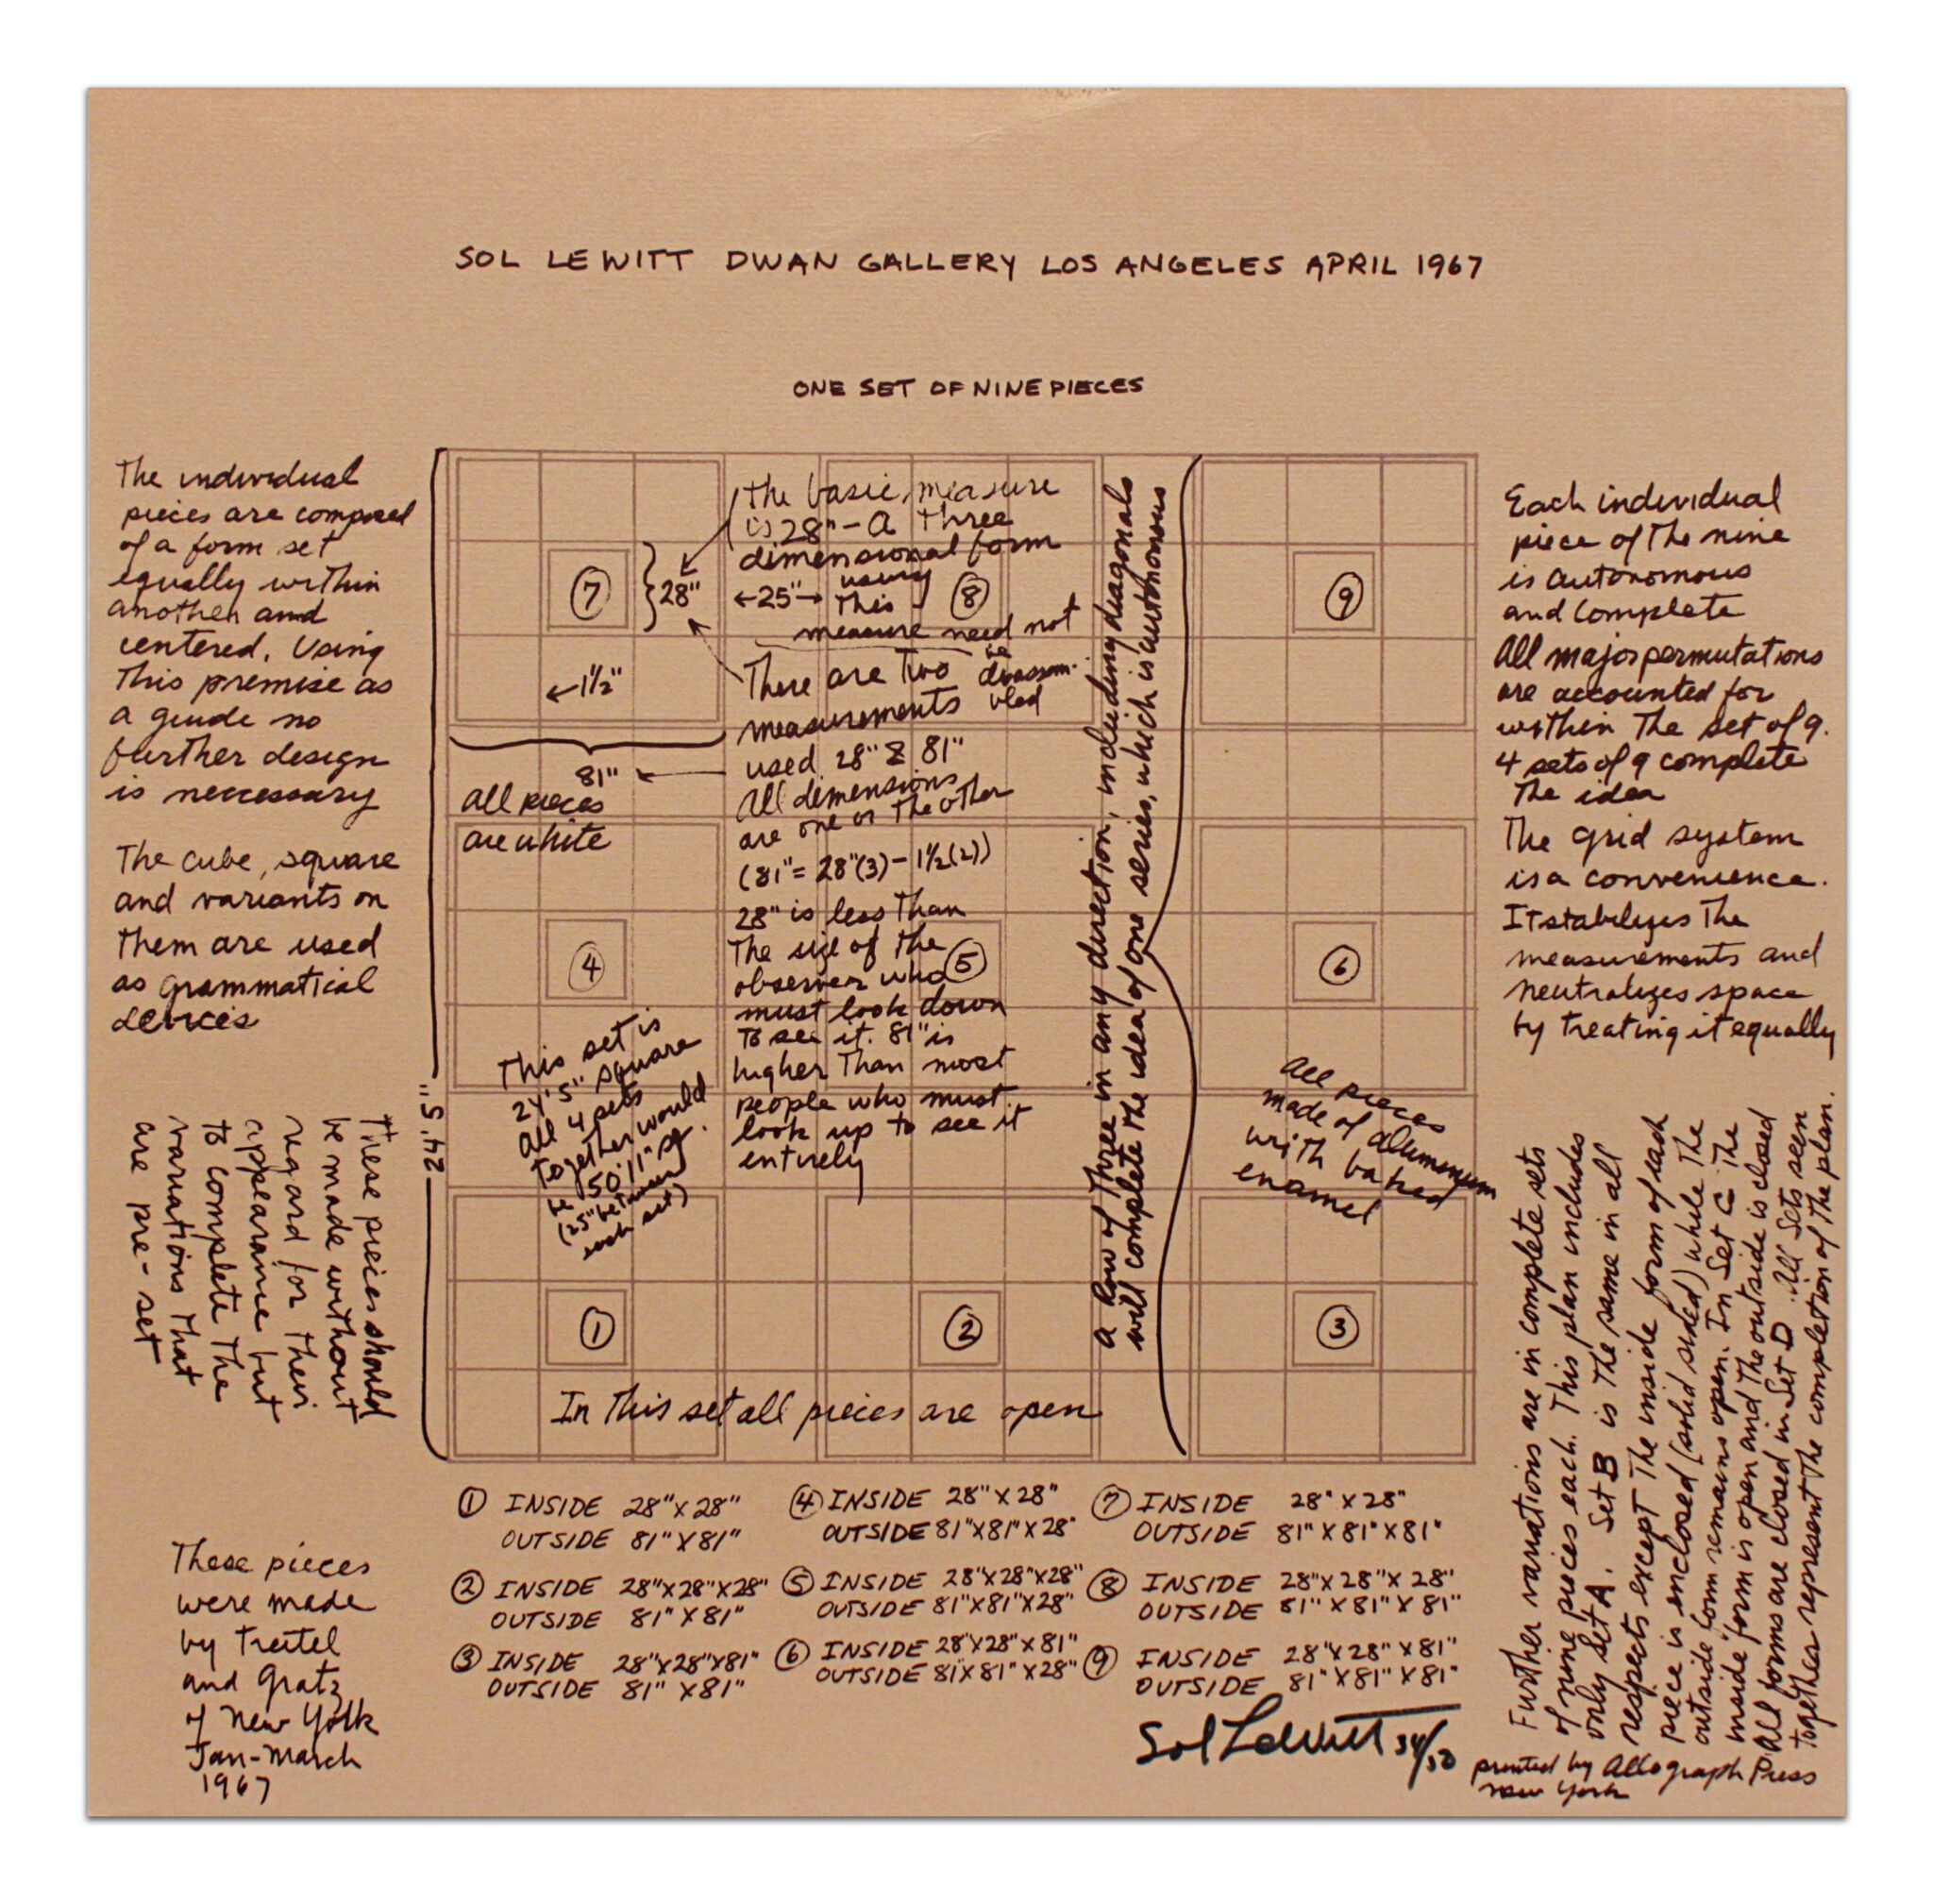 SOL LEWITT DWAN GALLERY LOS ANGELES APRIL 1967
ONE SET OF NINE PIECES
The individual
pieces are composed
of a form set
equally within
another and
centered. Using
This premise as
a guide no
further design
is neccessary
The cube, square
and variants on
them are used
as grammatical
devices
These pieces should
be made without
regard for their
appearance but
to complete the
variations that
are pre-set
These pieces
were made
by Treitel
and Gratz
of New York
Jan-March
1967
24'.5"
7
28"
←1½"
81"
All pieces
are white
the basic measure
is 28" - A three
dimensional form
using
←25"→ This 8
measure need not
be
disassem-
bled
There are two
measurements
used 28" & 81"
All dimensions
are one or the other
(81" = 28"(3) - 1½(2))
28" is less than
The size of the
observer who
must look down
to see it. 81" is
higher Than most
people who must
look up to see it
entirely
4
5
6
9
This set is
24'5" square
All 4 sets
together would
be 50'11" sq.
(25" between
each set)
a Row of three in any direction, including diagonals
will complete the idea of one series, which is autonomous
All pieces
made of aluminum
with baked
enamel
1
2
3
In This set all pieces are open
Each individual
piece of the nine
is autonomous
and complete
All major permutations
are accounted for
within The set of 9.
4 sets of 9 complete
The idea
The grid system
is a convenience.
It stabilizes The
measurements and
neutralizes space
by treating it equally
Further variations are in complete sets
of nine pieces each. This plan includes
only Set A. Set B is the same in all
respects except The inside form of each
piece is enclosed (solid sided) while The
outside form remains open. In Set C The
inside form is open and The outside is closed
All forms are closed in Set D. All Sets seen
together represent The completion of The plan.
① INSIDE 28"X28"
OUTSIDE 81"X81"
② INSIDE 28"X28"X28"
OUTSIDE 81"X81"
③ INSIDE 28"X28"X81"
OUTSIDE 81"X81"
④ INSIDE 28"X28"
OUTSIDE 81"X81"X28"
⑤ INSIDE 28"X28"X28"
OUTSIDE 81"X81"X28"
⑥ INSIDE 28"X28"X81"
OUTSIDE 81X81"X28"
⑦ INSIDE 28"X28"
OUTSIDE 81"X81"X81"
⑧ INSIDE 28"X28"X28"
OUTSIDE 81"X81"X81"
⑨ INSIDE 28"X28"X81"
OUTSIDE 81"X81"X81"
Sol LeWitt 34/50
printed by Allograph Press
New York